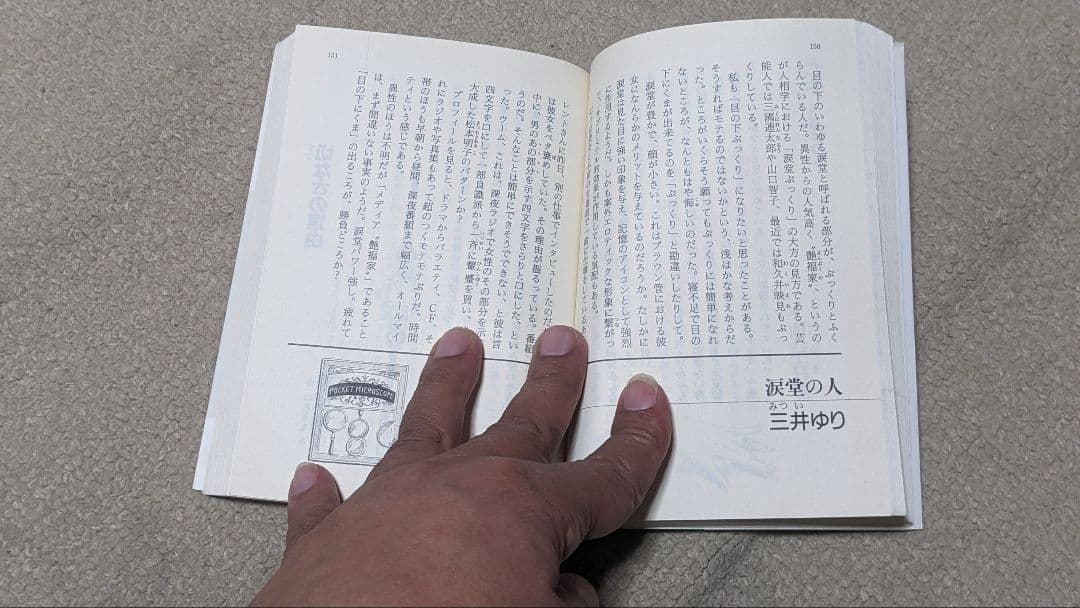 150
涙堂の人
みつい
三井ゆり
目の下のいわゆる涙堂と呼ばれる部分が、ぷっくりとふく
らんでいる人だ。異性からの人気高く、〝艶福家〟、というの
が人相学における「涙堂ぷっくり」の大方の見方である。芸
能人では三國連太郎や山口智子、最近では和久井映見もぷっ
くりしている。
私も「目の下ぷっくり」になりたいと思ったことがある。
そうすればモテるのではないかという、浅はかな考えからだ
った。ところがいくらそう願ってもぷっくりには簡単になれ
ないところが、なんともはや悔しいのだった。寝不足で目の
下にくまが出来てるのを「ぷっくり」と勘違いしたりして。
涙堂が豊かで、顔が小さい。これはブラウン管における彼
女になんらかのメリットを与えているのだろうか。たしかに
涙堂は見た目に強い印象を与え、記憶のアイコンとして強烈
に作用するようだ。しかも案外エロティックな形象に繋がっ
151
レントさんに昨日、別の仕事でインタビューしたのだ
は彼女をベタ褒めしていた。その理由が振るっている。番組
中に、男のあの部分を示す四文字をさらりと口にした、とい
うのだ。そんなことは簡単にできそうでできない、と彼は言
った。ウーム、これは、深夜ラジオで女性のその部分を示
四文字を口にして一部良識派から一斉に顰蹙を買い、
大成した松本明子のパターンか?
プロフィールを見ると、ドラマからバラエティ、CF、そ
れにラジオや写真集もあって超のつくモテモテぶりだ。時間
帯のほうも早朝から昼間、深夜番組まで幅広く、オールマイ
ティという感じである。
異性のほうは不明だが〝メディア〟艶福家〟であること
は、まず間違いない事実のようだ。涙堂パワー強し。疲れて
「目の下にくま」の出るころが、勝負どころか?
POCKET MICROSCOPE